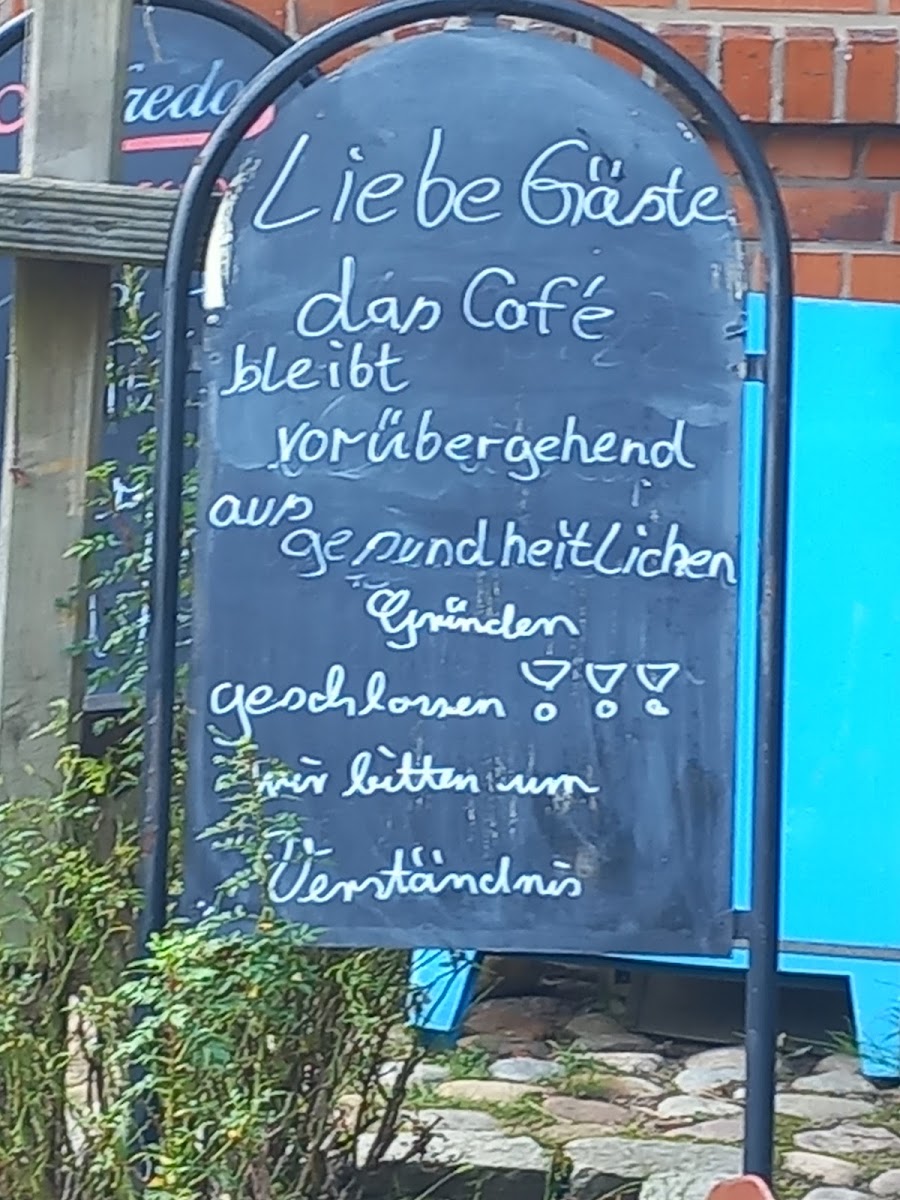 Liebe Gäste
das Café
bleibt
vorübergehend
aus
gesundheitlichen
Gründen
geschlossen !!!
wir bitten um
Verständnis